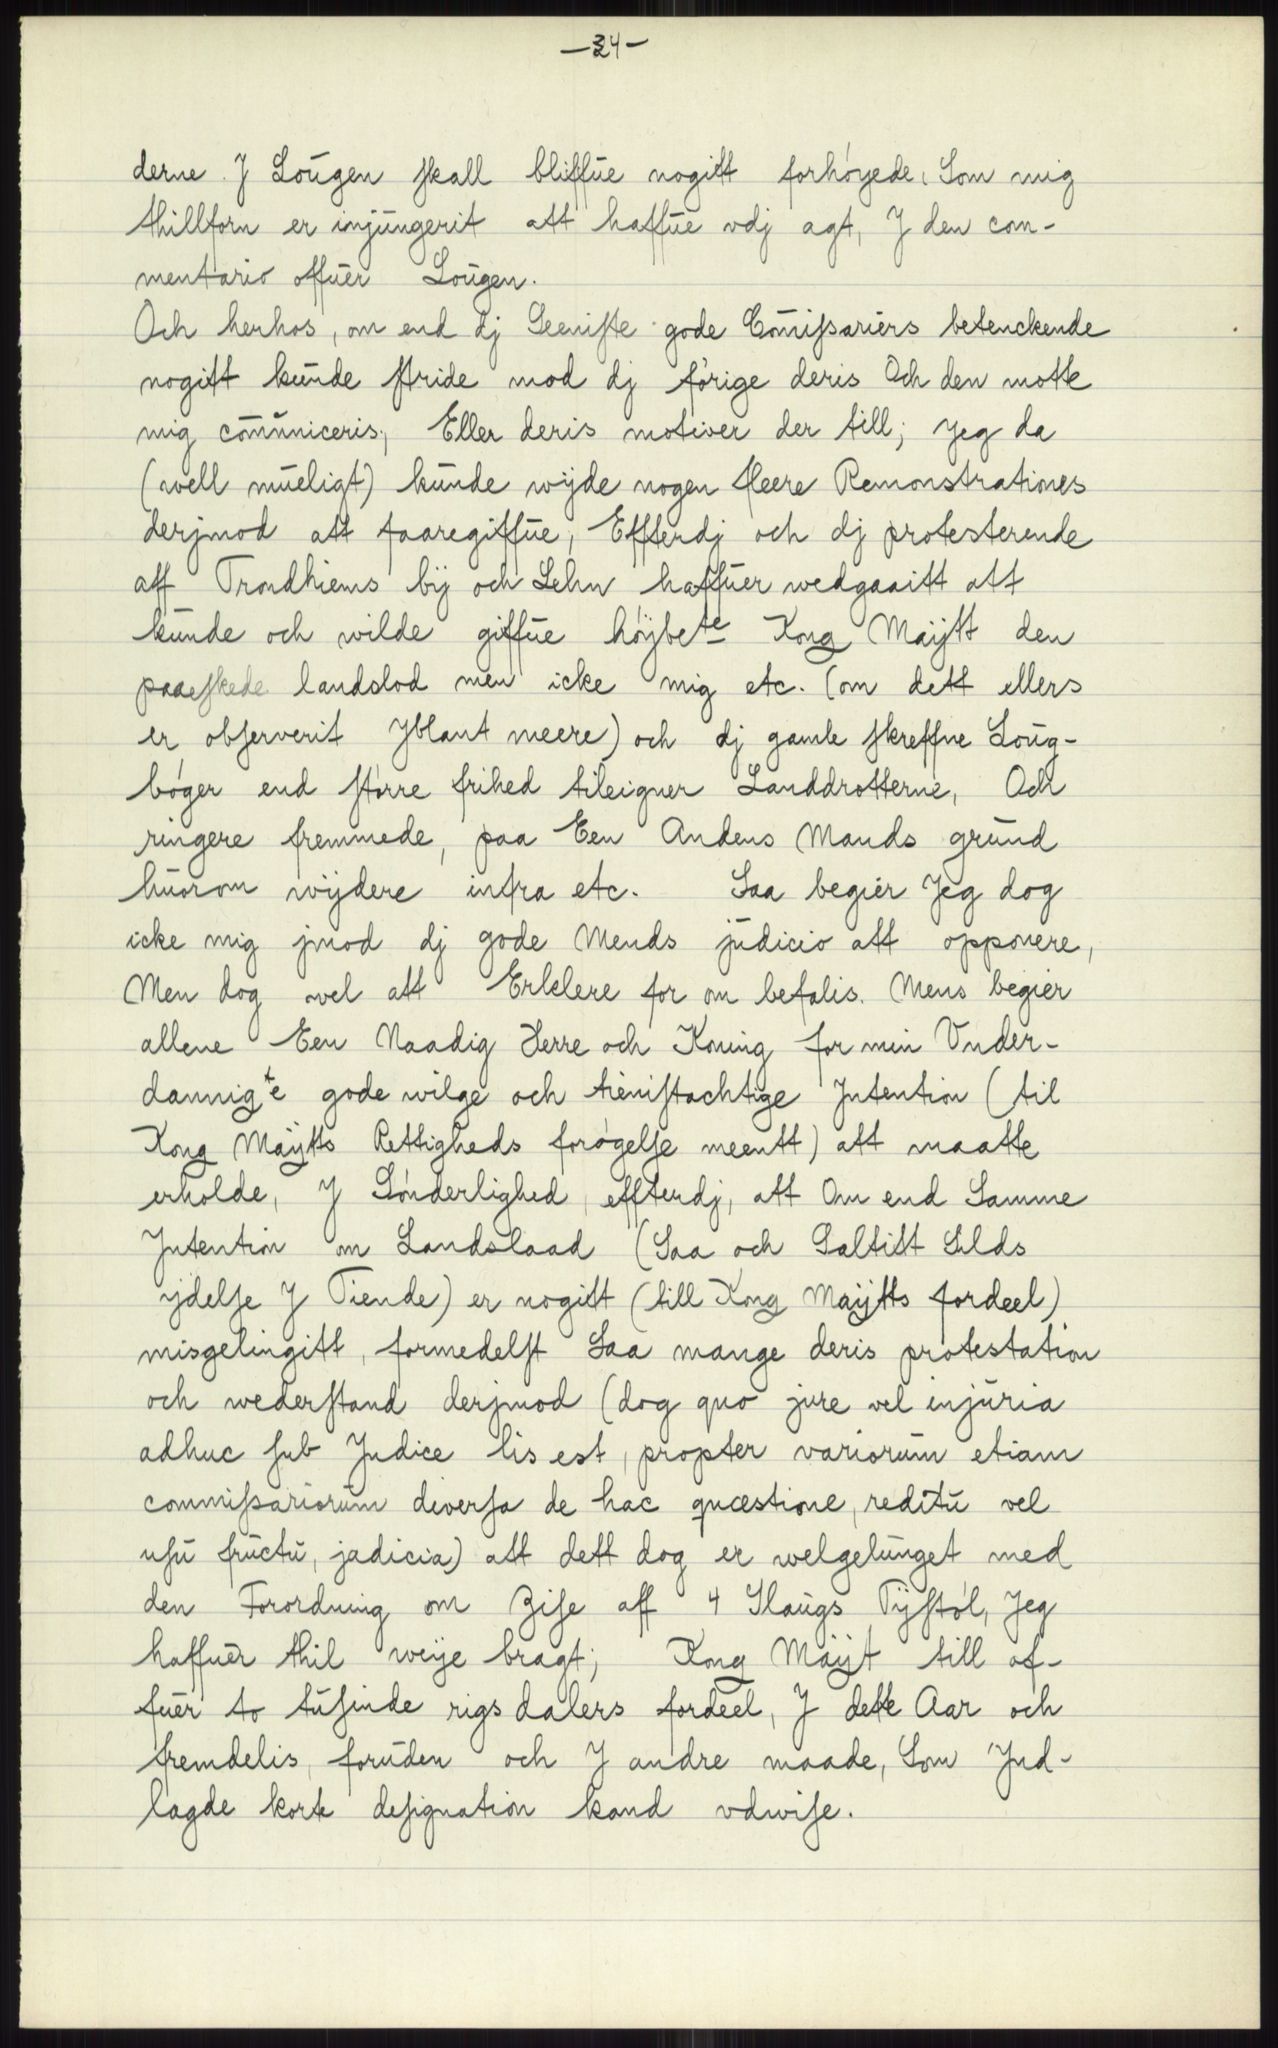 —34—
derne J Lougen skall bliffue nogitt forhøyede, Som mig
thillforn er injungerit att haffue vdj agt, J den com-
mentario offuer Lougen.
Och herhos, om end dj Seeniste gode Com̄issariers betenckende
nogitt kunde stride mod dj förige deris Och den motte
mig com̄uniceris; Eller deris motiver der till; Jeg da
(well mueligt) kunde wijde nogen fleere Remonstrationes
derjmod att faaregiffue, Effterdj och dj protesterende
aff Trondhiems bij och Lehn haffuer wedgaaitt att
kunde och wilde giffue höybete Kong Maytt den
paaeskede landslod men icke mig etc. (om dett ellers
er observerit Jblant meere) och dj gamle skreffne Loug-
bøger end större frihed tileigner Landdrotterne, Och
ringere fremmede, paa Een Andens Mands grund
huorom wijdere infra etc. Saa begier Jeg dog
icke mig jmod dj gode Mends judicio att opponere,
Men dog vel att Erklere for om befalis. Mens begier
allene Een Naadig Herre och Koning for min Vnder-
dannigte gode wilge och tienistachtige Intention (til
Kong Maÿtts Rettigheds forøgelse meentt) att maatte
erholde, J Sønderlighed, effterdj, att Om end Samme
Intention om Landslaad (Saa och Saltitt Silds
ijdelse J Tiende) er nogitt (till Kong Maytts fordeel)
misgelingitt, formedelst Saa mange deris protestation
och wederstand derjmod (dog quo jure vel injuria
adhuc sub Judice lis est, propter variorum etiam
commissariorum diversa de hac quæstione, reditu vel
usu fructu, jadicia) att dett dog er welgelunget med
den Forordning om Zise aff 4 Slaugs Tÿstøl, Jeg
haffuer thil weije bragt; Kong Mayt till of-
fuer to tusinde rigsdalers fordeel, J dette Aar och
fremdelis, foruden och J andre maade, Som Jnd-
lagde korte designation kand vdwise.